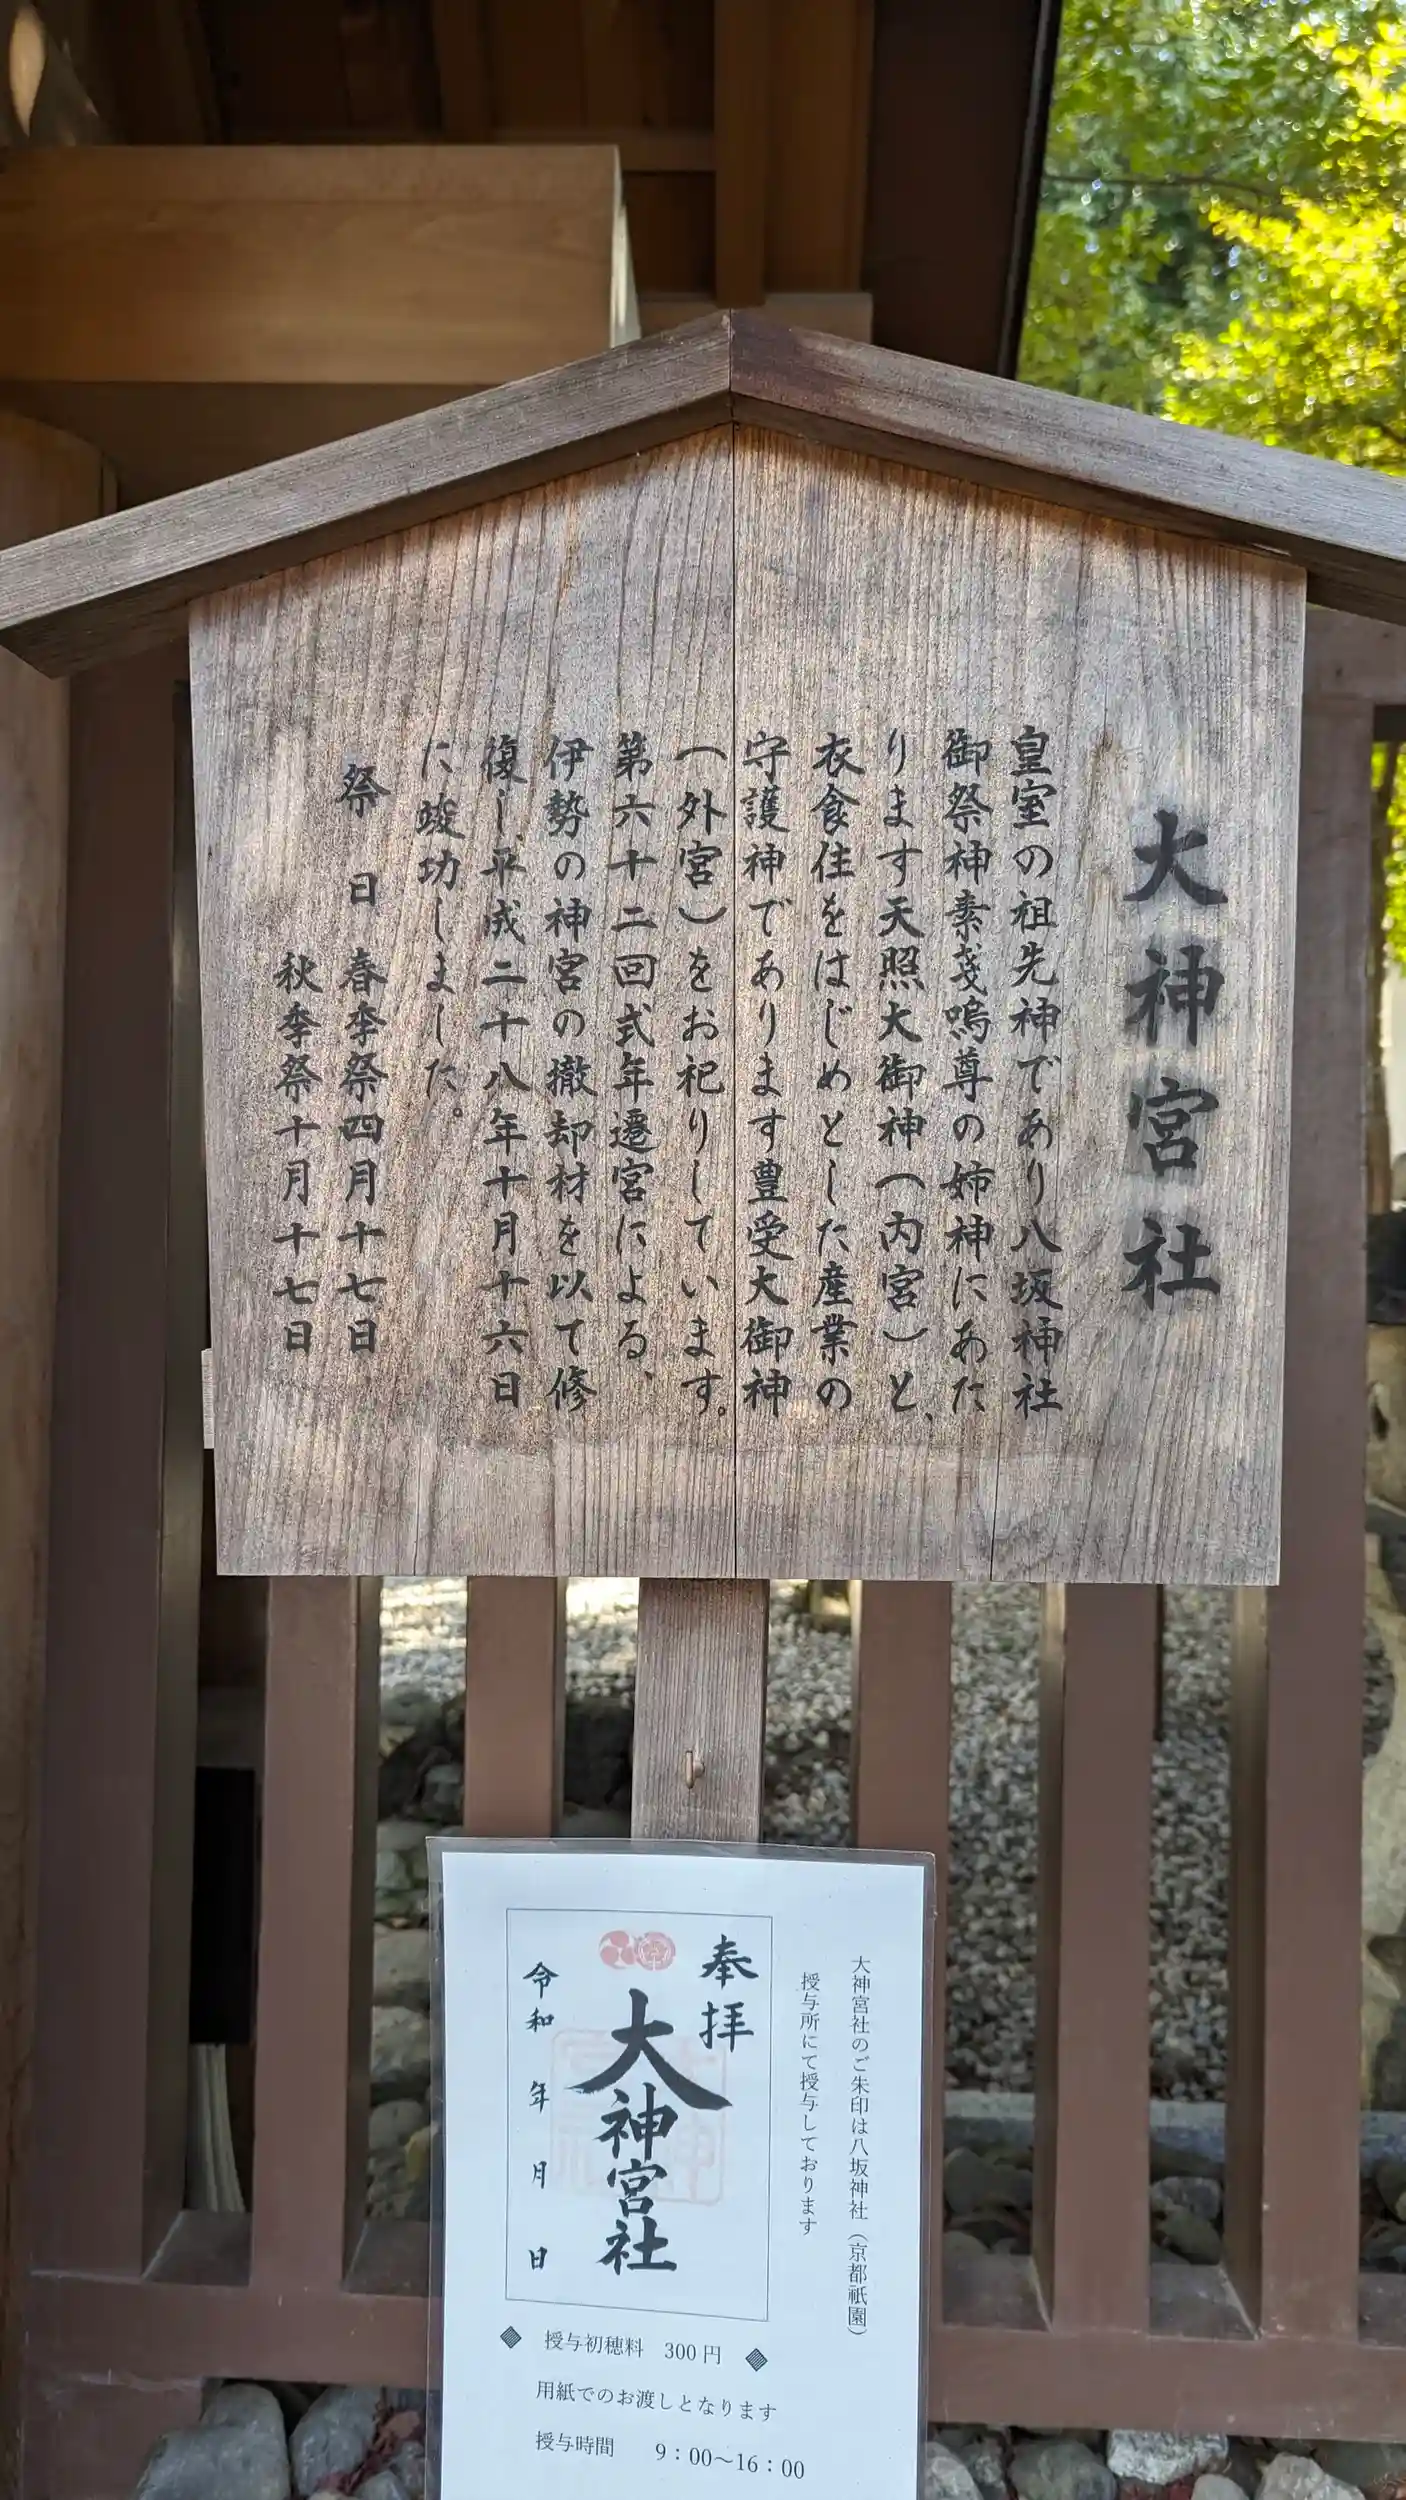 大神宮社
皇室の祖先神であり八坂神社
御祭神素戔嗚尊の姉神にあた
ります天照大御神(内宮)と、
衣食住をはじめとした産業の
守護神であります豊受大御神
(外宮)をお祀りしています。
第六十二回式年遷宮による、
伊勢の神宮の撤却材を以て修
復し、平成二十八年十月十六日
に竣功しました。
祭 日 春季祭四月十七日
秋季祭十月十七日
大神宮社のご朱印は八坂神社(京都祇園)
授与所にて授与しております
奉拝
大神宮社
令和 年 月 日
◆ 授与初穂料 300円 ◆
用紙でのお渡しとなります
授与時間 9:00〜16:00